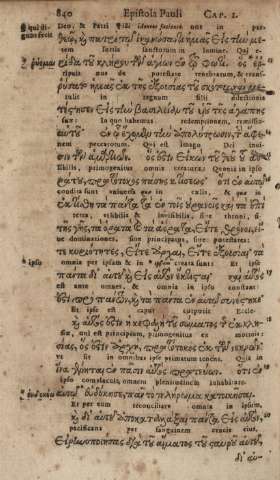 840 Epistola Pauli CAP. I.
Deo, & Patri qui dignos fecit nos in par-
τῷ πατρὶ τῷ ἱκανώσαντι ἡμᾶς εἰς τὴν με-
tem sortis sanctorum in lumine. Qui e-
ρίδα τοῦ κλήρου τῶν ἁγίων ἐν τῷ φωτί. ὃς ἐρ-
ripuit nos de potestate tenebrarum, & trans-
ρύσατο ἡμᾶς ἐκ τῆς ἐξουσίας τοῦ σκότους, καὶ με-
tulit in regnum dilectionis
τέστησεν εἰς τὴν βασιλείαν τοῦ υἱοῦ τῆς ἀγάπης
sui: In quo habemus redemptionem, remissio-
αὐτοῦ ἐν ᾧ ἔχομεν τὴν ἀπολύτρωσιν, τὴν ἄφε-
nem peccatorum. Qui est imago Dei invi-
σιν τῶν ἁμαρτιῶν. ὅς ἐστιν εἰκὼν τοῦ θεοῦ τοῦ ἀο-
sibilis, primogenitus omnis creaturæ: Quonia in ipso
ράτου, πρωτότοκος πάσης κτίσεως· ὅτι ἐν αὐτῷ
condita sunt universa in cælis, & in
ἐκτίσθη τὰ πάντα ἐν τοῖς οὐρανοῖς καὶ τὰ ἐπὶ
terra, visibilia & invisibilia, sive throni, si-
τῆς γῆς, τὰ ὁρατὰ καὶ τὰ ἀόρατα, εἴτε θρόνοι, εἴ-
ve dominationes, sive principatus, sive potestates:
τε κυριότητες, εἴτε ἀρχαί, εἴτε ἐξουσίαι· τὰ
ipso omnia per ipsum & in * creata sunt: Et ipse
πάντα δι' αὐτοῦ καὶ εἰς αὐτὸν ἔκτισται· καὶ αὐτός
est ante omnes, & omnia in ipso constant:
ἐστι πρὸ πάντων, καὶ τὰ πάντα ἐν αὐτῷ συνέστηκε·
Et ipse est caput corporis Eccle-
καὶ αὐτός ἐστιν ἡ κεφαλὴ τοῦ σώματος τῆς ἐκκλη-
siæ, qui est principium, primogenitus ex mortuis:
σίας, ὅς ἐστιν ἀρχή, πρωτότοκος ἐκ τῶν νεκρῶν·
ut sit in omnibus ipse primatum tenens. Quia in
ἵνα γένηται ἐν πᾶσιν αὐτὸς πρωτεύων. ὅτι ἐν
ipso complacuit, omnem plenitudinem inhabitare.
αὐτῷ εὐδόκησε, πᾶν τὸ πλήρωμα κατοικῆσαι.
Et per eum reconciliare omnia in ipsum,
καὶ δι' αὐτοῦ ἀποκαταλλάξαι τὰ πάντα εἰς αὐτόν,
pacificans per sanguinem crucis eius,
εἰρηνοποιήσας διὰ τοῦ αἵματος τοῦ σταυροῦ αὐτοῦ,
δι' αὐ-